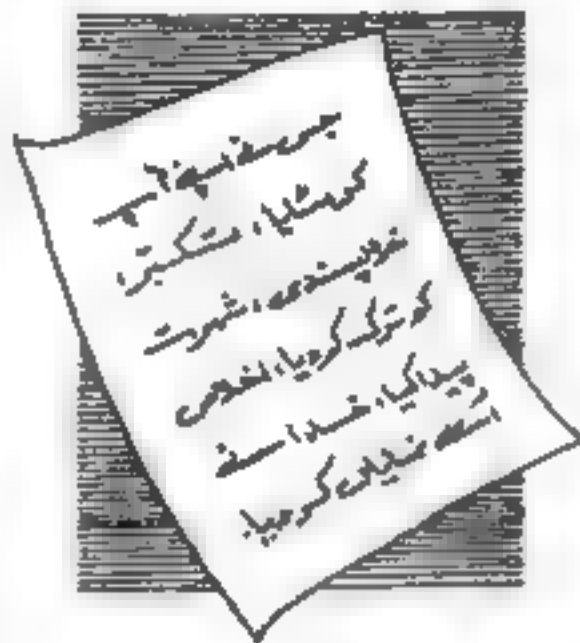 جس نے اپنے آپ
کو مٹایا، تکبر،
خود پسندی، شہرت
کو ترک کردیا، اخلاص
پیدا کیا، خدا نے
اُسے نمایاں کر دیا۔